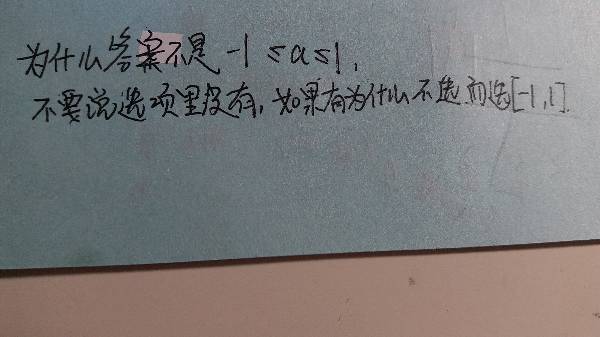 为什么答案不是 -1≤a≤1,
不要说选项里没有,如果有为什么不选而选[-1,1].